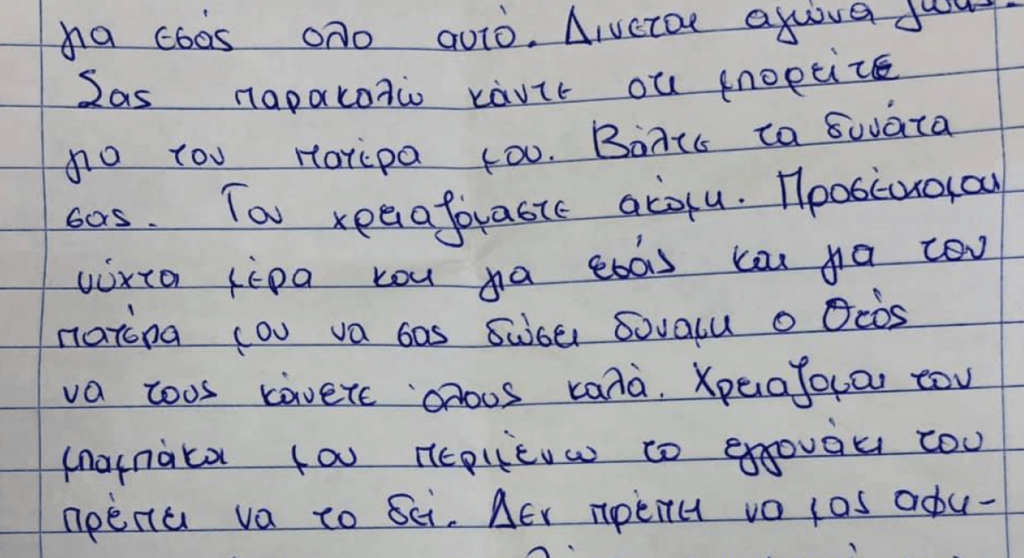 για εσάς ολο αυτό. Δινεται αγώνα
Σας παρακαλώ κάντε οτι μπορείτε
για τον πατέρα μου. Βάλτε τα δυνάτα
σας. Τον χρειαζόμαστε ακόμη. Προσέυχομαι
νύχτα μέρα και για εσάς και για τον
πατέρα μου να σας δώσει δυναμη ο Θεός
να τους κάνετε όλους καλά. Χρειαζομαι τον
μπαμπάκα μου περιμένω το εγγονάκι του
πρέπει να το δεί. Δεν πρέπει να μας αφη-